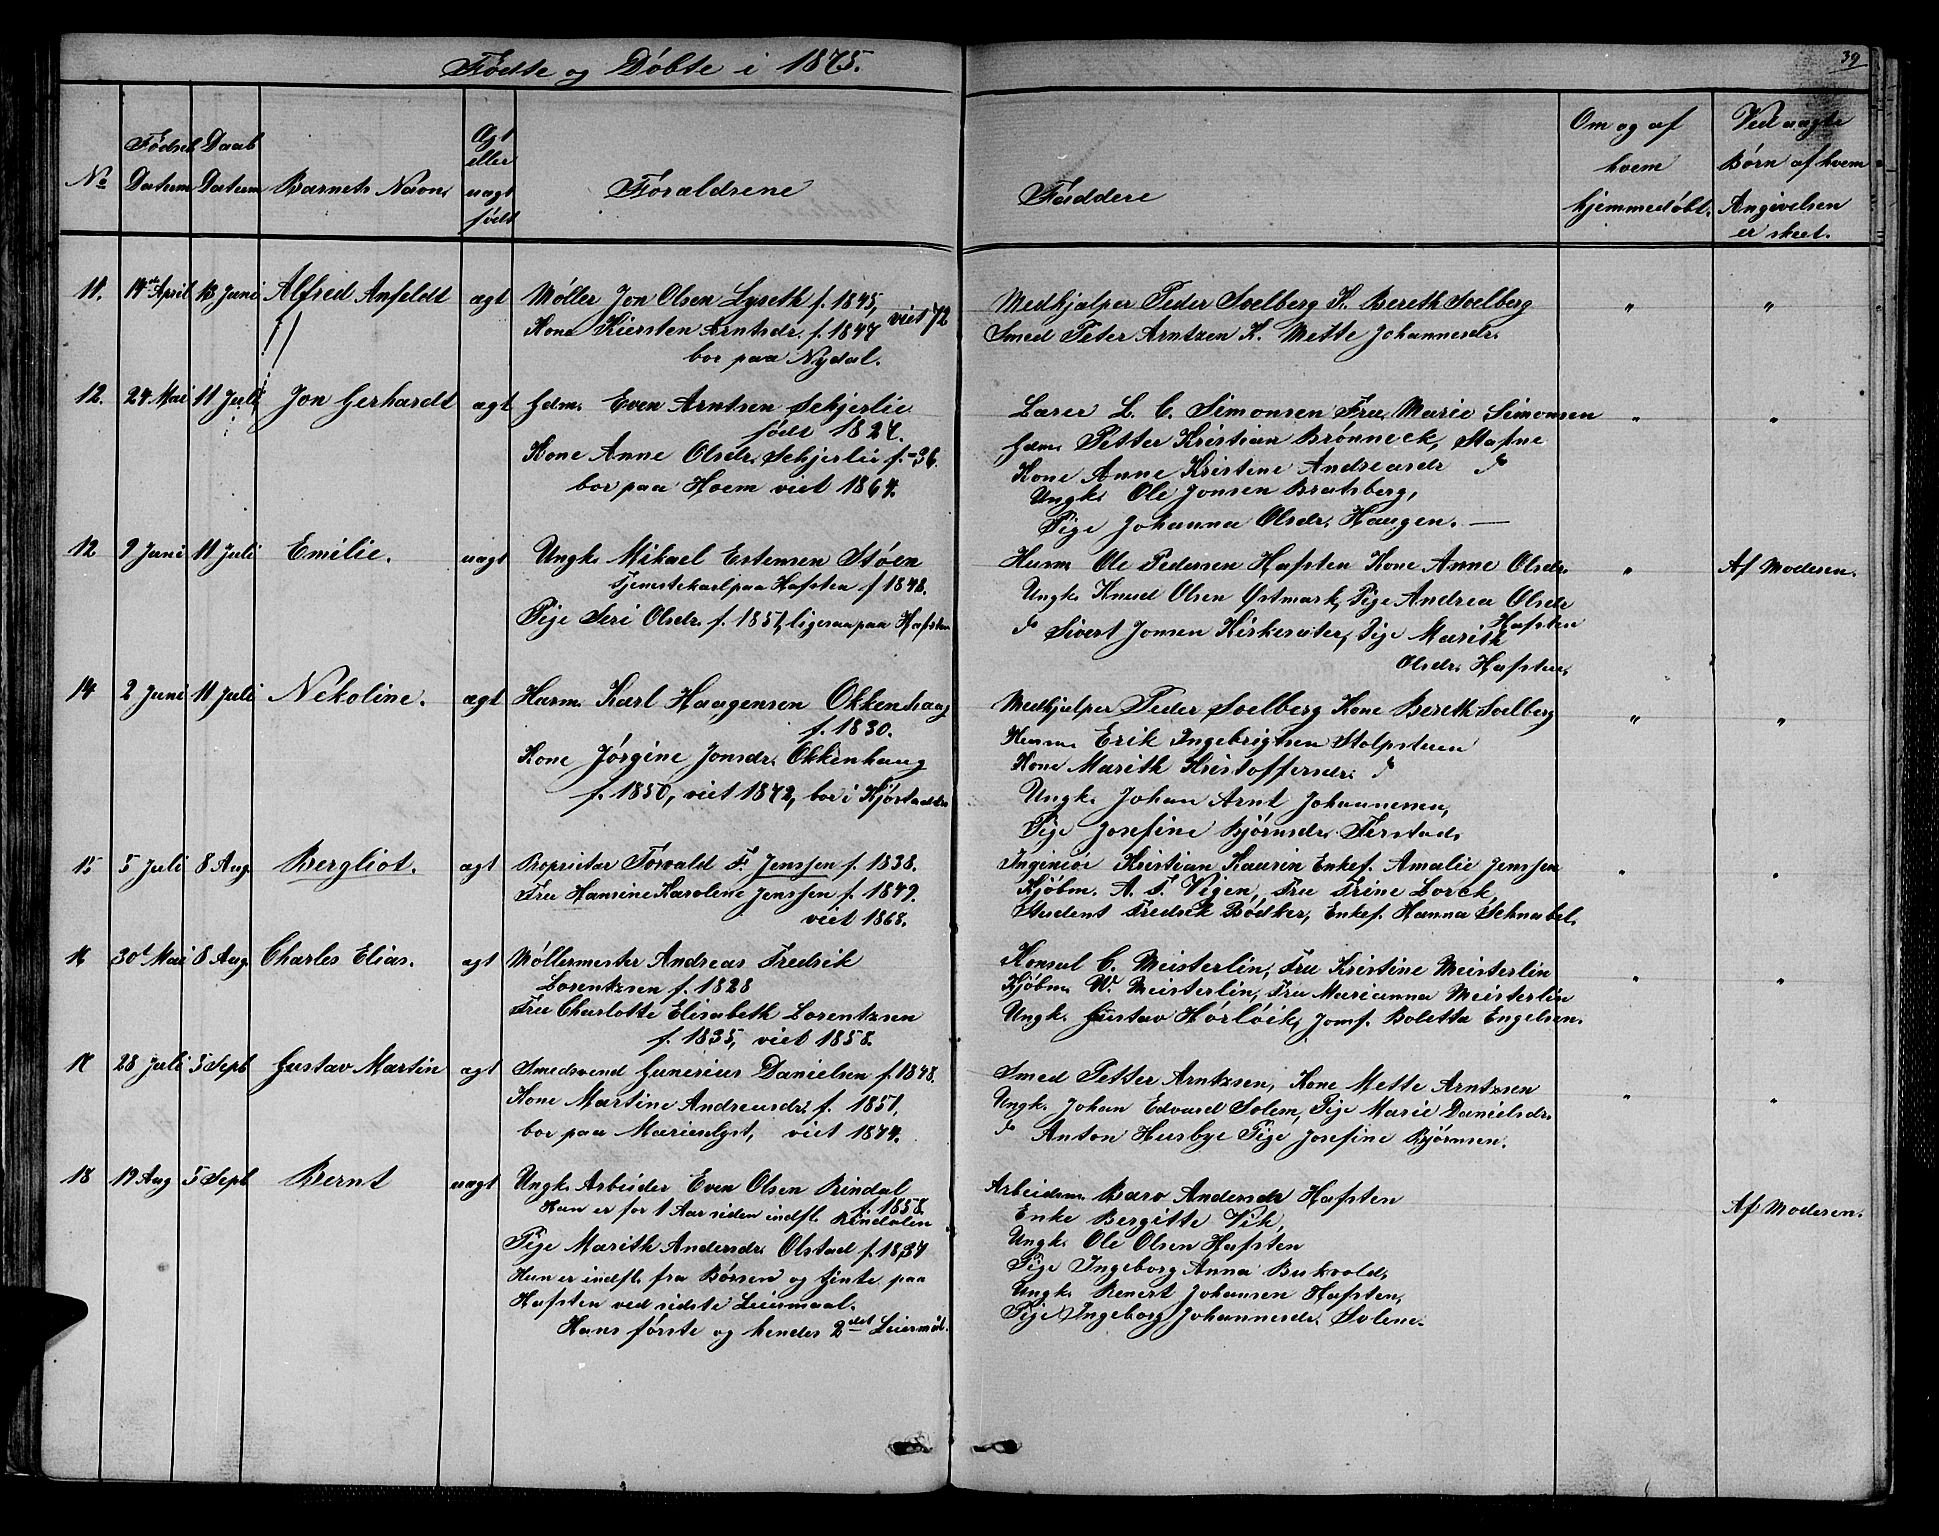 Fødte og Døbte i 1875.
39
No
Fødsels Datum
Daab Datum
Barnets Navn.
Ægt eller uægt født
Forældrene
Faddere
Om og af hvem hjemmedøbt.
Ved uægte Børn af hvem Angivelsen er skeet.
11. 14de April 13 Juni Alfred Anfeldt ægt
Møller Jon Olsen Lyseth f. 1845, viet 72
Kone Kiersten Arntsdr. f. 1847
bor paa Nydal.
Medhjælper Peder Solberg K. Bereth Solberg
Smed Peter Arntzen K. Mette Johannesdr.
" "
12. 24 Mai 11 Juli Jon Gerhardt ægt
Gdm. Even Arntsen Schjerlie
født 1827.
Kone Anne Olsdr. Schjerlie f.-36.
bor paa Hoem viet 1864.
Lærer L. C. Simonsen Fru Marie Simonsen
Gdm. Petter Kristian Brønneck, Stafne
Kone Anne Kristine Andreasdr
Ungk. Ole Jonsen Bratsberg,
Pige Johanna Olsdr. Haugen. —
" "
12 9 Juni 11 Juli Emilie. uægt
Ungk. Mikael Estensen Støen
Tjenestekarl paa Hafsten f 1848.
Pige Seri Olsdr. f. 1851, ligesaa paa Hafsten
Husm Ole Pedersen Hafsten Kone Anne Olsdr.
Ungk. Knud Olsen Østmark, Pige Andrea Olsdr
Hafsten
Sivert Jonsen Kirkesæter, Pige Marith
Olsdr. Hafsten.
" Af Moderen.
14 2 Juni 11 Juli Nekoline. ægt
Husm. Karl Haagensen Okkenhaug
f. 1830.
Kone Jørgine Jonsdr. Okkenhaug
f. 1850, viet 1872, bor i
Medhjælper Peder Solberg Kone Bereth Solberg
Husm Erik Ingebrigtsen Stolpstuen
Kone Marith Kristoffersdr.
Ungk. Johan Arnt Johannesen,
Pige Josefine Bjørnsdr. Ferstad,
" "
15 5 Juli 8 Aug. Bergliot. ægt
Proprietær Torvald F. Jenssen f. 1838.
Fru Hansine Karoline Jenssen f. 1849.
viet 1868.
Ingeniør Kristian Kaurin Enkef. Amalie Jenssen
Kjøbm. A. F. Vigen, Fru Trine Lorck,
Student Fredrik Bødker, Enkef. Hanna Schnabel.
" "
16 30d Mai 8 Aug. Charles Elias. ægt
Møllermester Andreas Fredrik
Lorentzsen f. 1828
Fru Charlotte Elisabeth Lorentzsen
f. 1835, viet 1858.
Konsul C. Meisterlin, Fru Kristine Meisterlin
Kjøbm. W. Meisterlin, Fru Marianna Meisterlin
Ungk. Gustav Hørløck, Jomf. Boletta Engelsen.
" "
17 28 Juli 5 Sept Gustav Martin ægt
Smedsvend Gunerius Danielsen f. 1848.
Kone Martine Andreasdr. f. 1851,
bor paa Marienlyst, viet 1874.
Smed Petter Arntzsen, Kone Mette Arntzsen
Ungk. Johan Edvard Solem, Pige Marie Danielsdr.
Anton Husbye Pige Josefine Bjørnsen.
" "
18 19 Aug 5 Sept Bernt uægt
Ungk. Arbeider Even Olsen Rindal
f. 1858.
Han er for 1 Aar siden indfl. Rindalen
Pige Marith Andersdr. Olstad f. 1837
Hun er indfl. fra Børsen og tjente paa
Hafsten ved sidste Leiermaal.
Hans første og hendes 2det Leiermål.
Arbeidsm. Baro Andersdr Hafsten
Enke Bergitte Vik,
Ungk. Ole Olsen Hafsten
Pige Ingeborg Anna Bukvold,
Ungk. Renert Johansen Hafsten,
Pige Ingeborg Johannesdr. Solem.
Af Moderen.